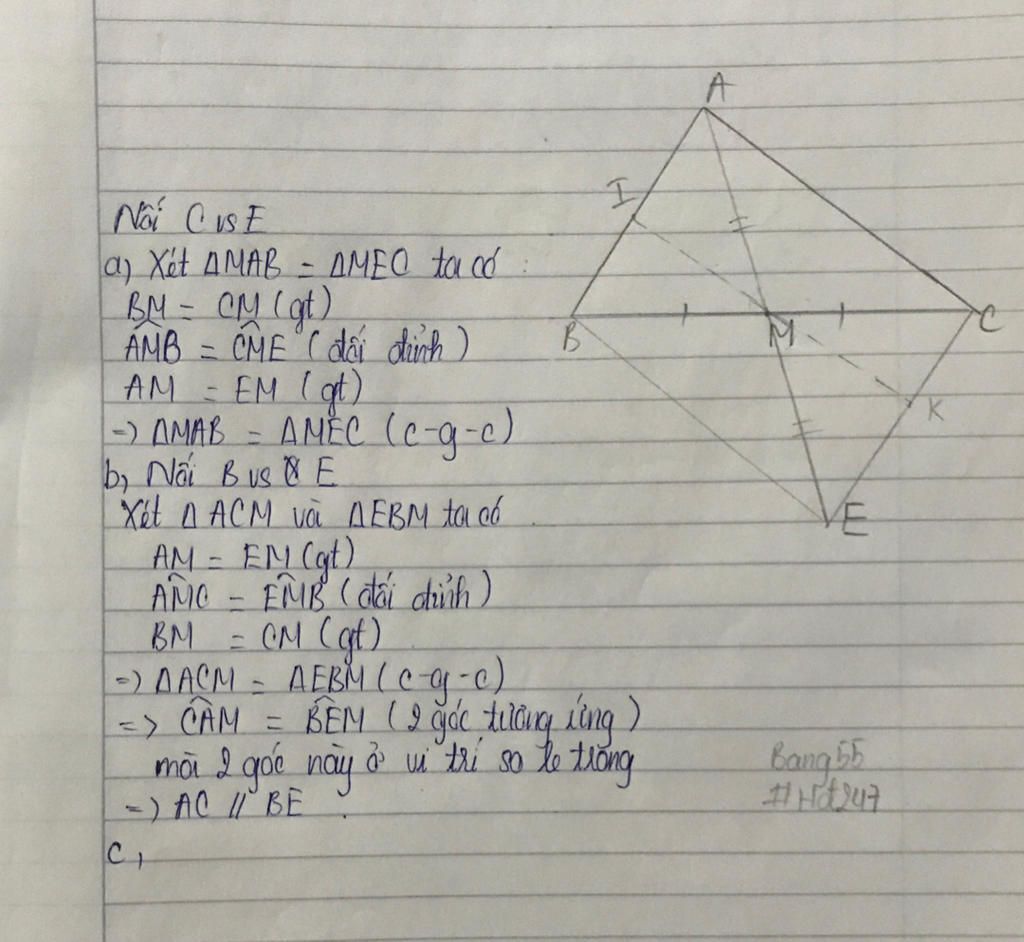 A
I
B
M
C
K
E
Nối C vs E
a) Xét ΔMAB = ΔMEC ta có :
BM = CM (gt)
AM̂B = CM̂E (đối đỉnh)
AM = EM (gt)
=) ΔMAB = ΔMEC (c-g-c)
b) Nối B vs E
Xét ΔACM và ΔEBM ta có
AM = EM (gt)
AM̂C = EM̂B (đối đỉnh)
BM = CM (gt)
=) ΔACM = ΔEBM (c-g-c)
=> CÂM = BÊM (2 góc tương ứng)
mà 2 góc này ở vi trí so le trong
=) AC // BE .
Bang55
#Hd247
c,